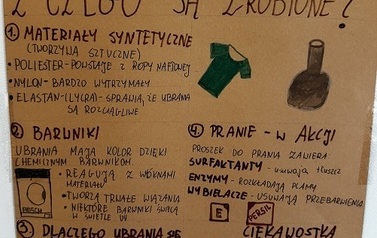 Z CZEGO SĄ ZROBIONE?
① MATERIAŁY SYNTETYCZNE
(TWORZYWA SZTUCZNE)
• POLIESTER - POWSTAJE Z ROPY NAFTOWEJ
• NYLON - BARDZO WYTRZYMAŁY
• ELASTAN (LYCRA) - SPRAWIA, ŻE UBRANIA
SĄ ROZCIĄGLIWE
② BARWNIKI
UBRANIA MAJĄ KOLOR DZIĘKI
CHEMICZNYM BARWNIKOM.
• REAGUJĄ Z WŁÓKNAMI
MATERIAŁU
• TWORZĄ TRWAŁE WIĄZANIA
• NIEKTÓRE BARWNIKI ŚWIECĄ
W ŚWIETLE UV
BOSCH
④ PRANIE - W AKCJI
PROSZEK DO PRANIA ZAWIERA
SURFAKTANTY - usuwają tłuszcz
ENZYMY - ROZKŁADAJĄ PLAMY
WYBIELACZE - USUWAJĄ PRZEBARWIENIA
E
PERSIL
③ DLACZEGO UBRANIA SIĘ
CIEKAWOSTKA